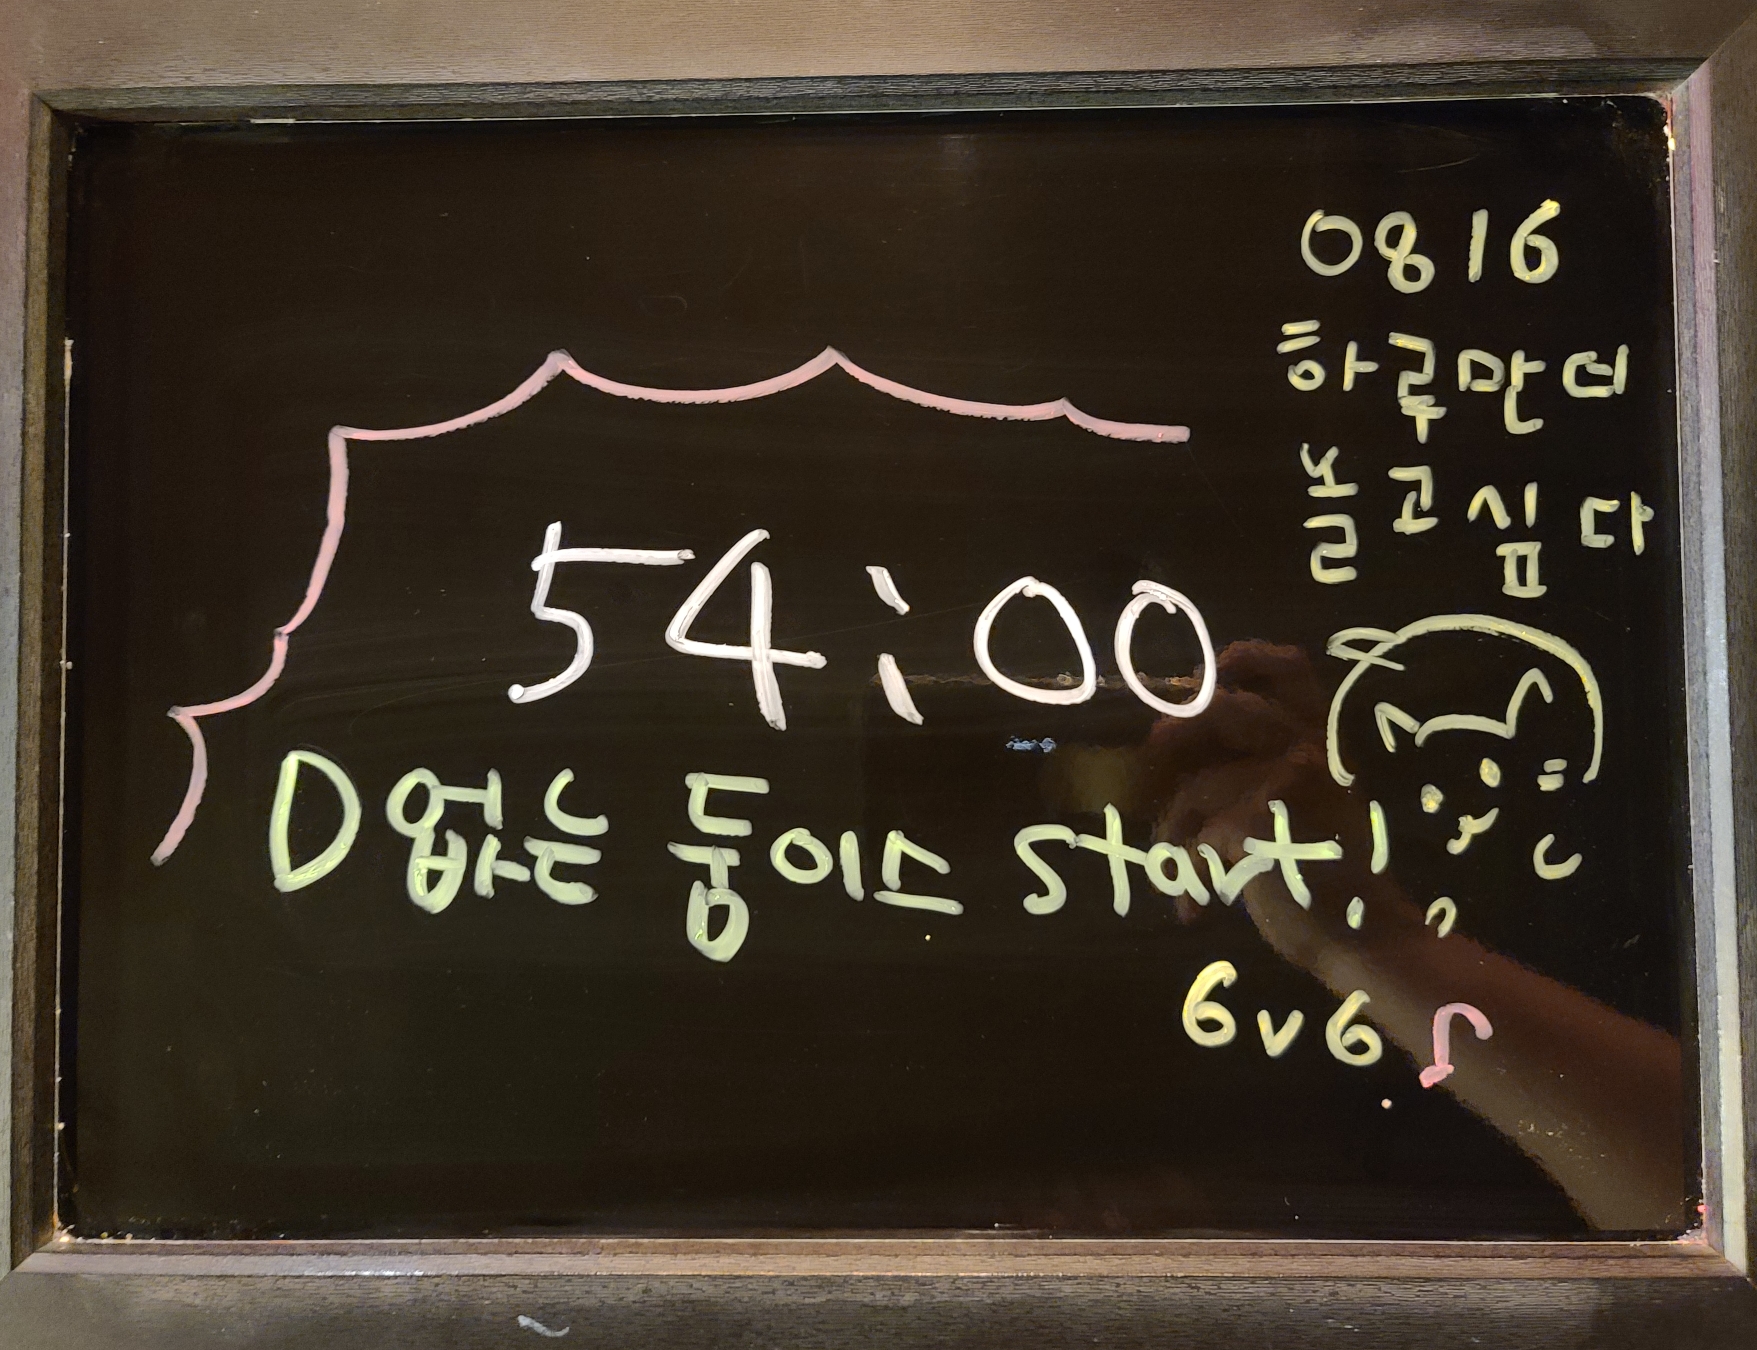 0816
하루만 더
놀고 싶다
54:00
D 없는 둥이즈 start!
6v6